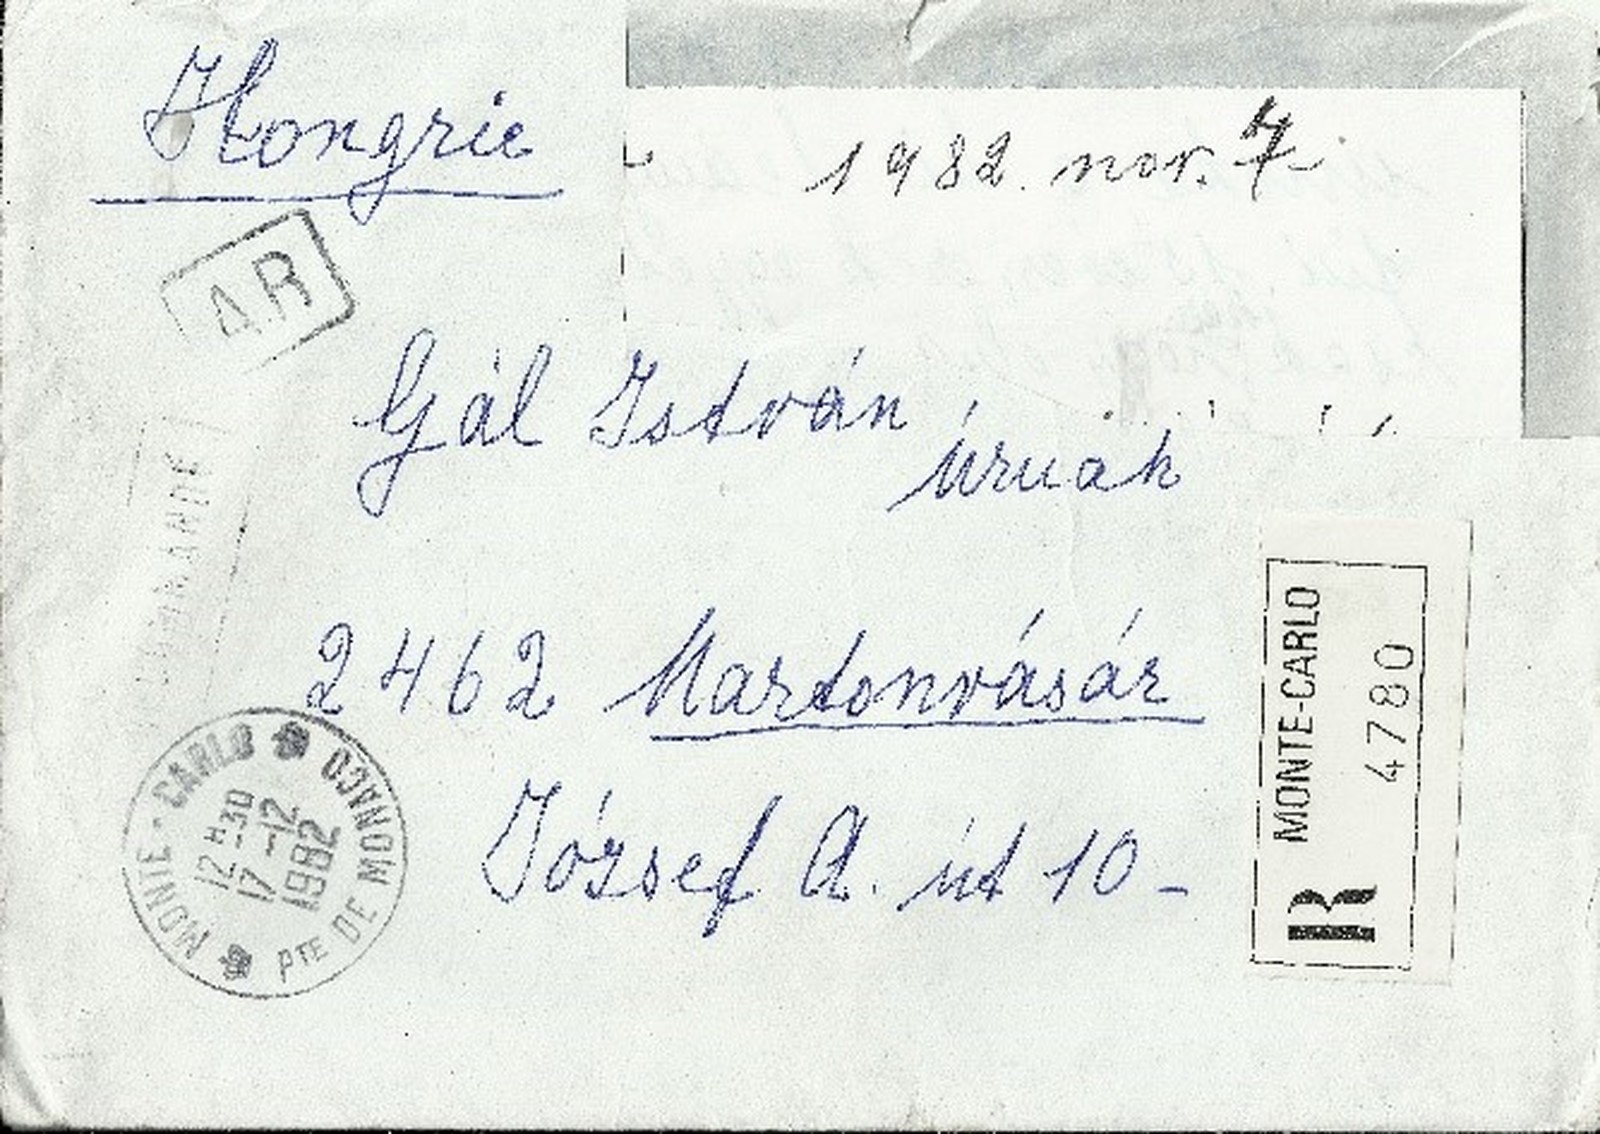 Hongrie
1982. nov. 7.
AR
Gál István
úrnak
2462 Martonvásár
József A. út 10-
MONTE-CARLO
4780
R
MONTE-CARLO MONACO
12 H -30
17 -12
1982
PTE DE MONACO